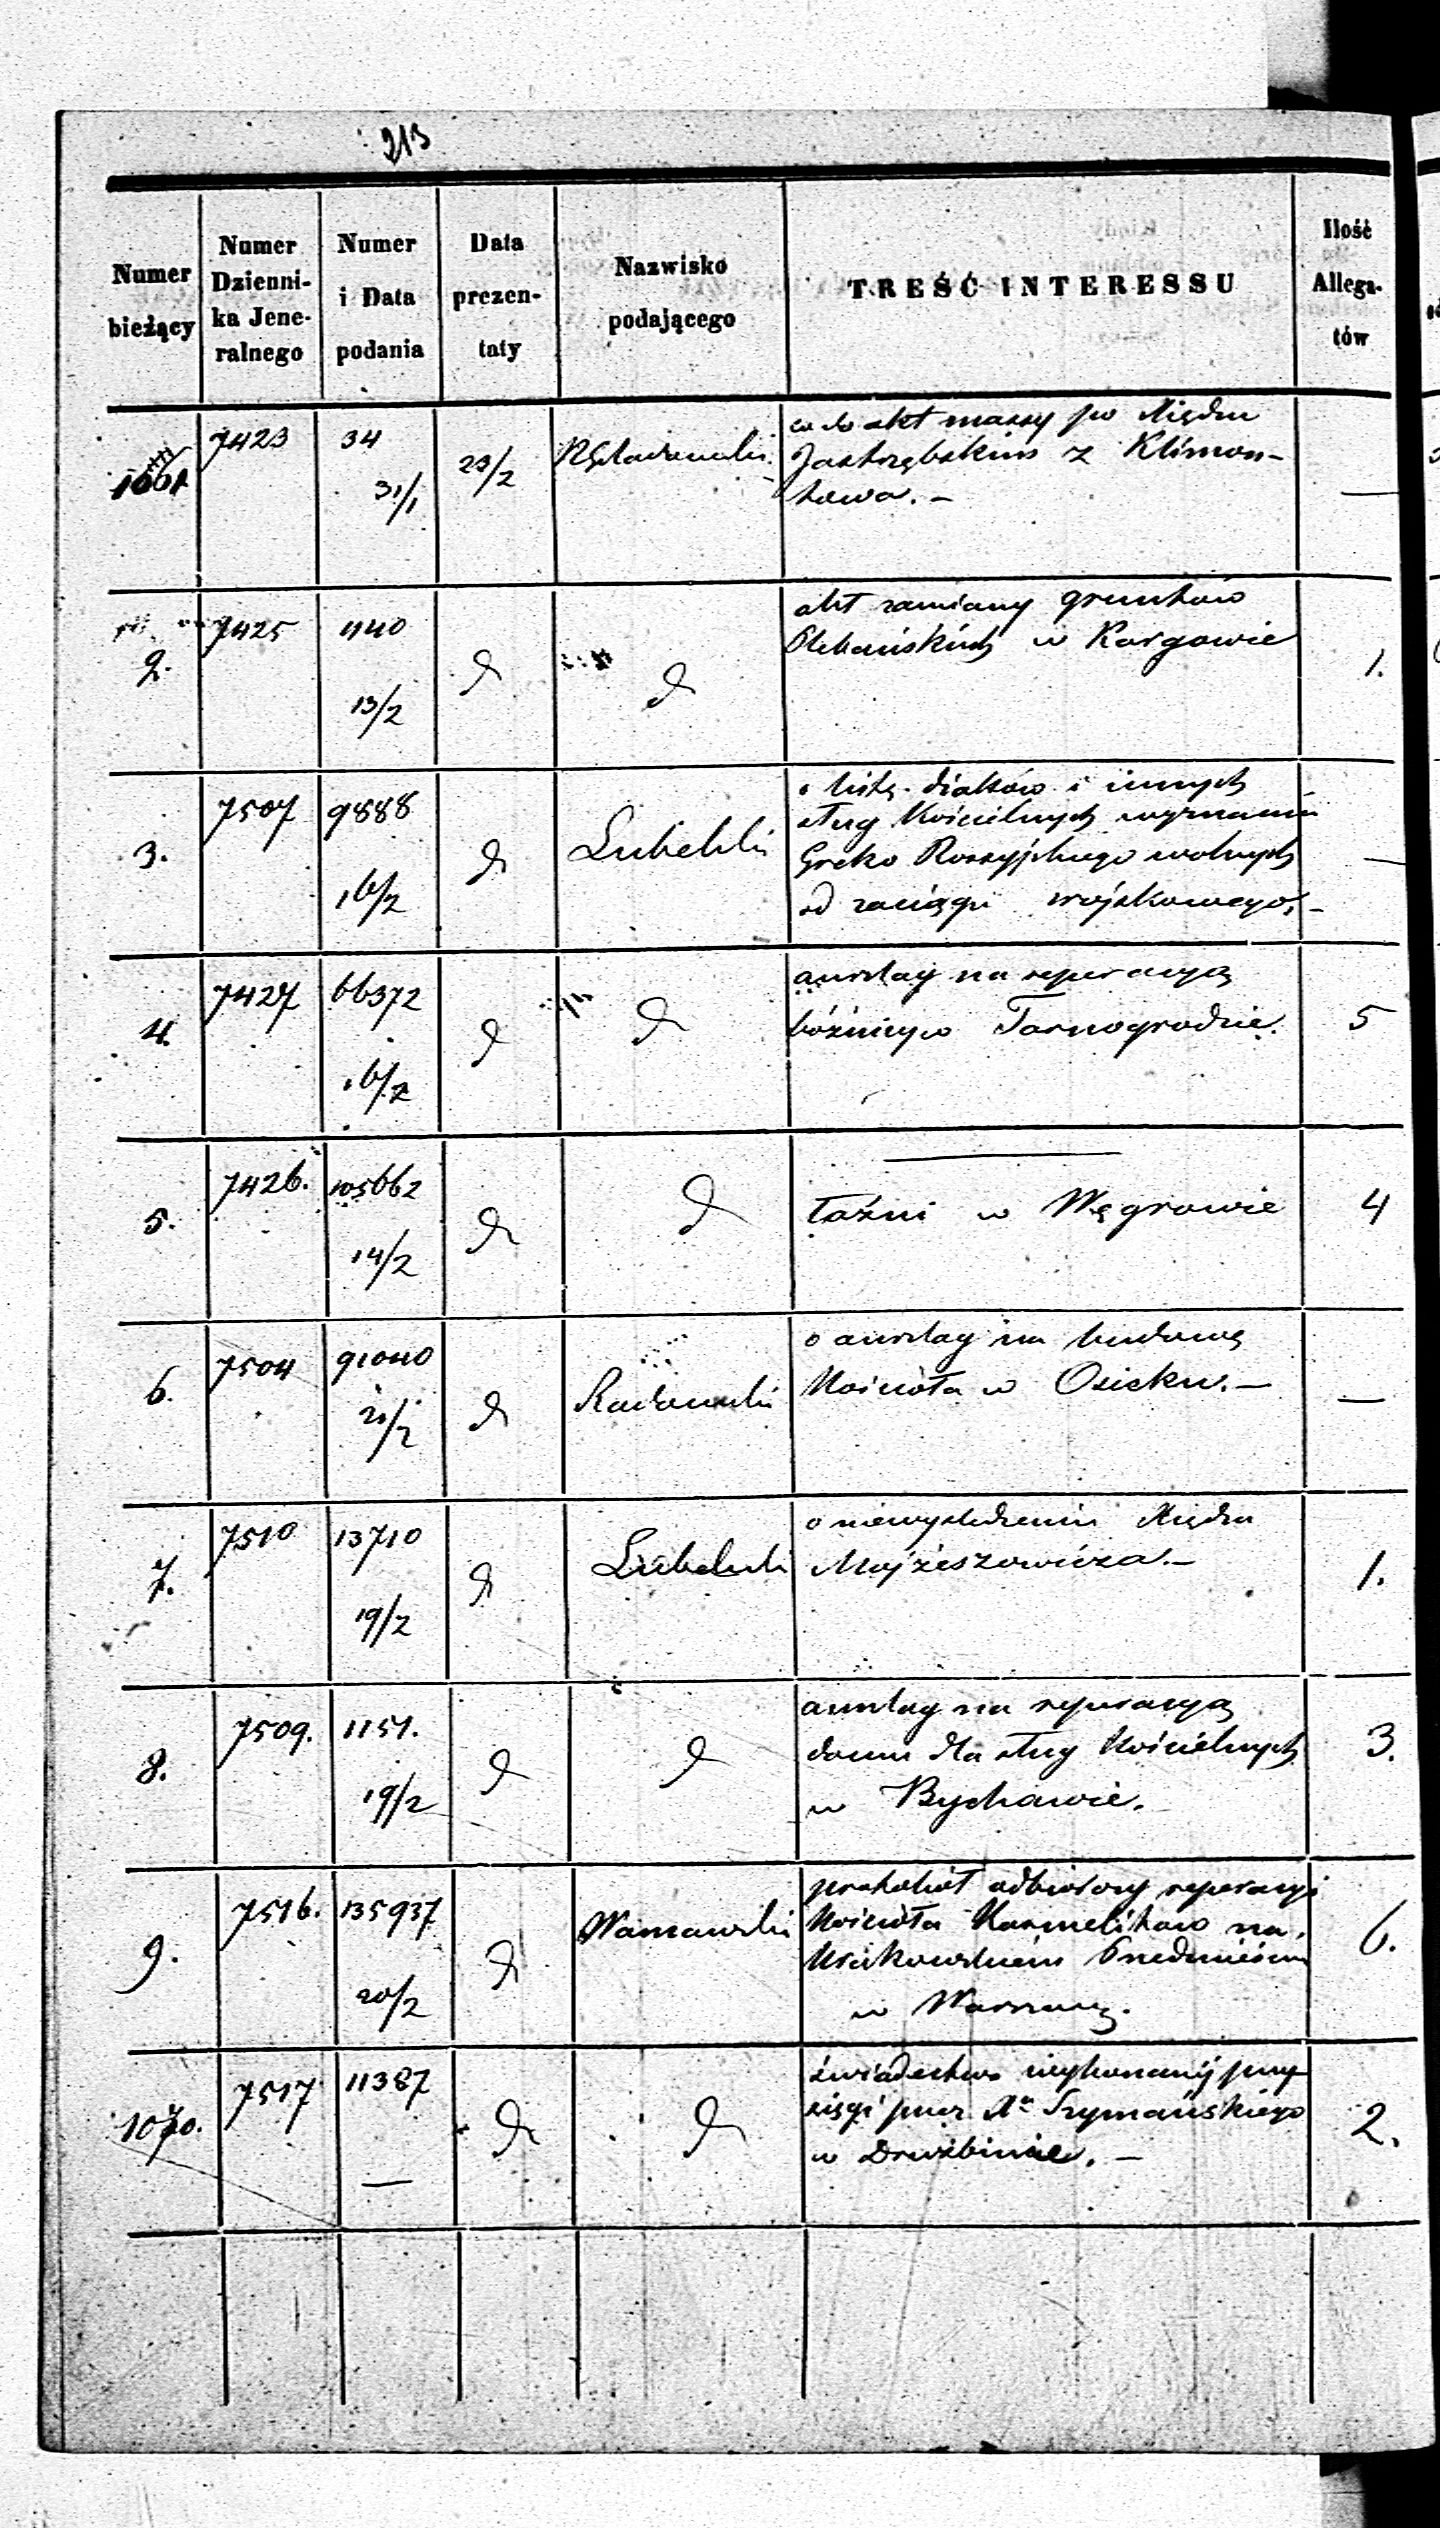 213
Numer bieżący
Numer Dzienni- ka Jene- ralnego
Numer i Data podania
Data prezen- taty
Nazwisko podającego
TREŚĆ INTERESSU
Ilość Allega- tów
1061 7423 34 31/1 23/2
akt massy po Księdzu
Jastrzębskim z Klimon-
towa. –
2. 7425 1140 13/2 d d 1.
akt zamiany gruntów
Plebańskich w Kargowie
3. 7507 9888 16/2 d Lubelski –
o listę diaków i innych
sług Kościelnych wyznania
Greko Rossyjskiego wolnych
od zaciągu wojskowego, –
4. 7427 66372 16/2 d d 5
anszlag na reperacyą
bóżnicy w Tarnogrodzie.
5. 7426. 105662 14/2 d d 4
łaźni w Węgrowie
6. 7504 91040 21/2 d Radomski –
o anszlag na budowę
Kościoła w Osieku. –
7. 7510 13710 19/2 d Lubelski 1.
o niewyśledzeniu Księdza
Mojżeszowicza. –
8. 7509. 1151. 19/2 d d 3.
anszlag na reperacyą
domu dla sług Kościelnych
w Bychawie.
9. 7516. 135937 20/2 d Warszawski 6.
protokół odbiorczy reperacyi
Kościoła Karmelitów na
Krakowskiem Przedmieściu
w Warszawie.
1070. 7517 11387 — d d 2.
świadectwo wykonanéj przy-
sięgi przez Xa Szymańskiego
w Drużbinie. –